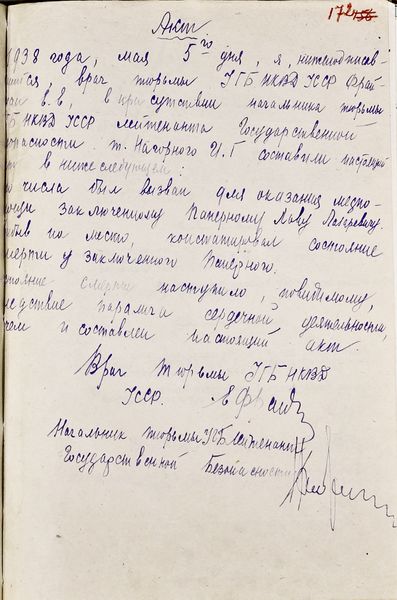 172 156
Акт
1938 года, мая 5го дня, я, нижеподписав-
шийся, врач тюрьмы УГБ НКВД УССР Фрай-
ман В.Е, в присутствии начальника тюрьмы
УГБ НКВД УССР лейтенанта Государственной
безопасности т. Нагорного И.Г составили настоящий
акт в нижеследующем:
числа был вызван для оказания медпо-
мощи заключенному Паперному Льву Лазаревичу.
на место, констатировал состояние
смерти у заключенного Паперного.
состояние смерти наступило, повидимому,
вследствие паралича сердечной деятельности,
чем и составлен настоящий акт.
Врач тюрьмы УГБ НКВД
УССР.
Начальник тюрьмы УГБ Лейтенант
Государственной Безопасности